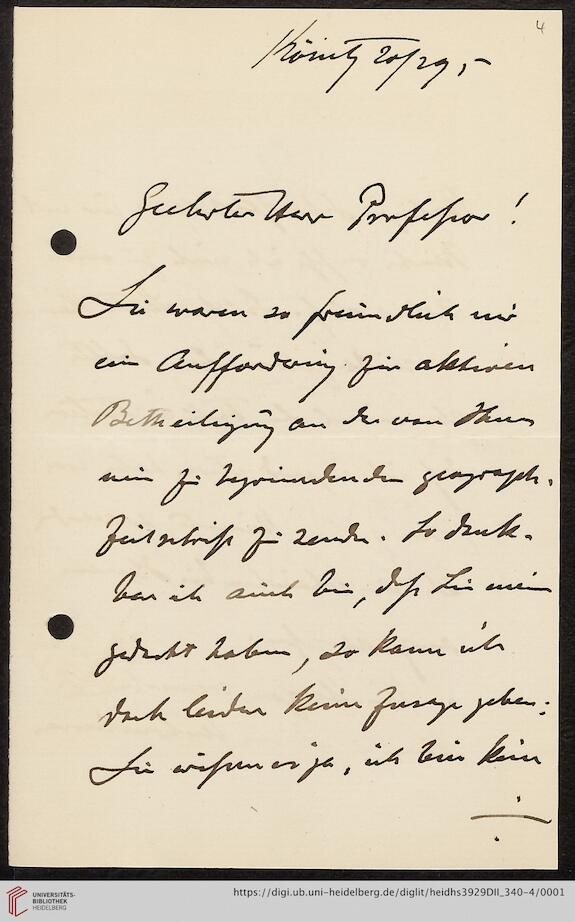 4
Kösnitz 20/29,5
Geehrter Herr Professor!
Sie waren so freundlich mir
ein Aufforderung zur aktiven
Betheiligung an der von Ihnen
neu zu begründenden geograph.
Zeitschrift zu senden. So dank-
bar ich auch bin, daß Sie mein
gedacht haben, so kann ich
doch leider keine Zusage geben;
Sie wissen es ja, ich bin kein
UNIVERSITÄTS-
BIBLIOTHEK
HEIDELBERG
https://digi.ub.uni-heidelberg.de/diglit/heidhs3929DII_340-4/0001